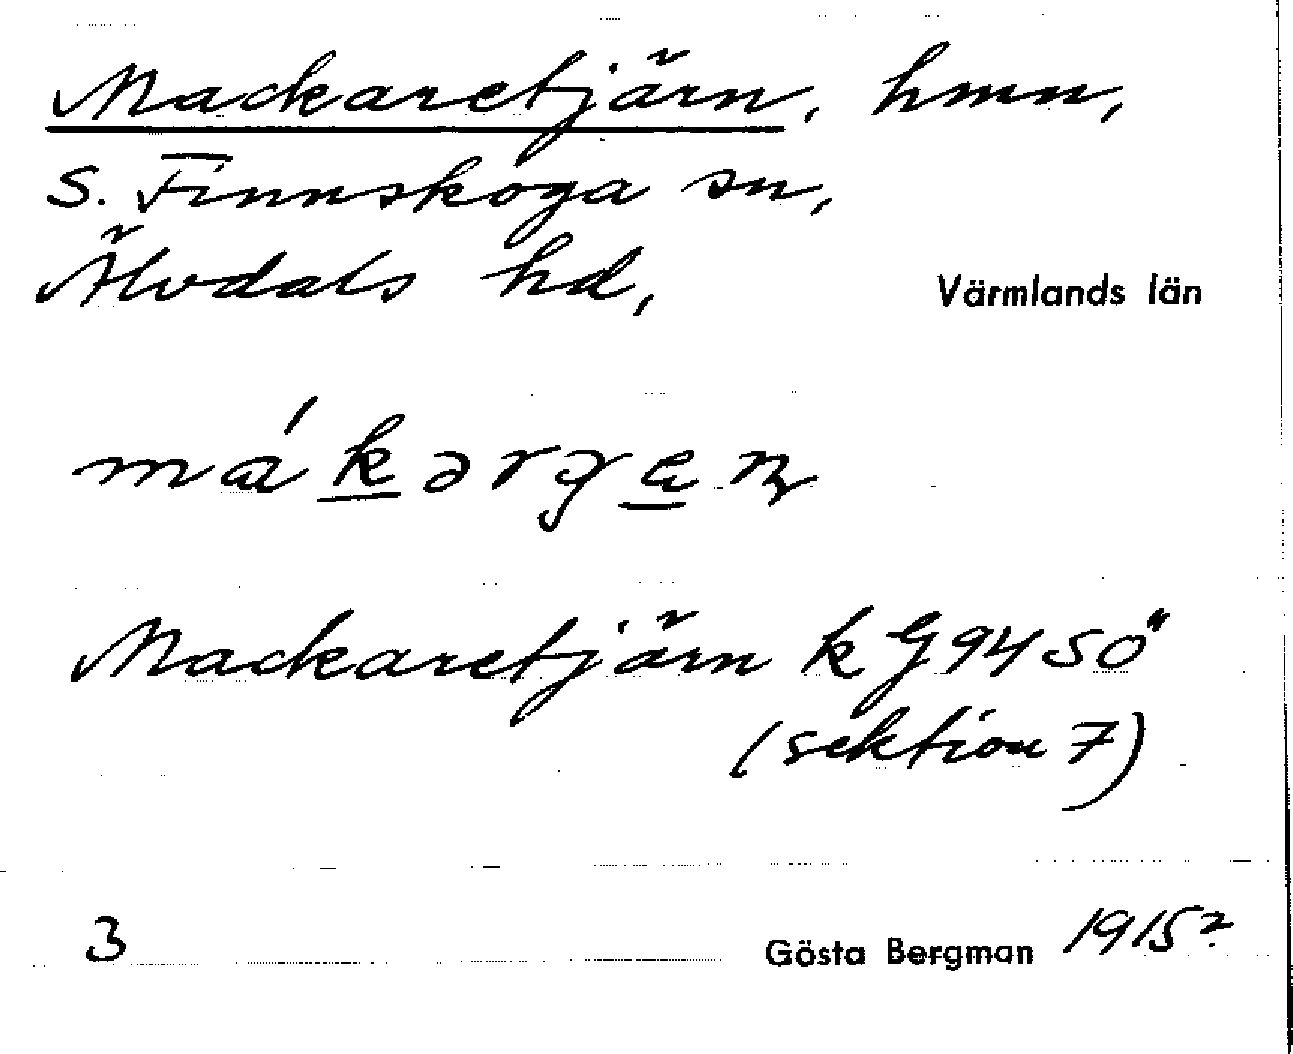 Mackaretjärn, hmn,
S. Finnskoga sn,
Älvdals hd,
Värmlands län
Mackaretjärn k G 94 SÖ
(sektion 7)
3
Gösta Bergman 1915?